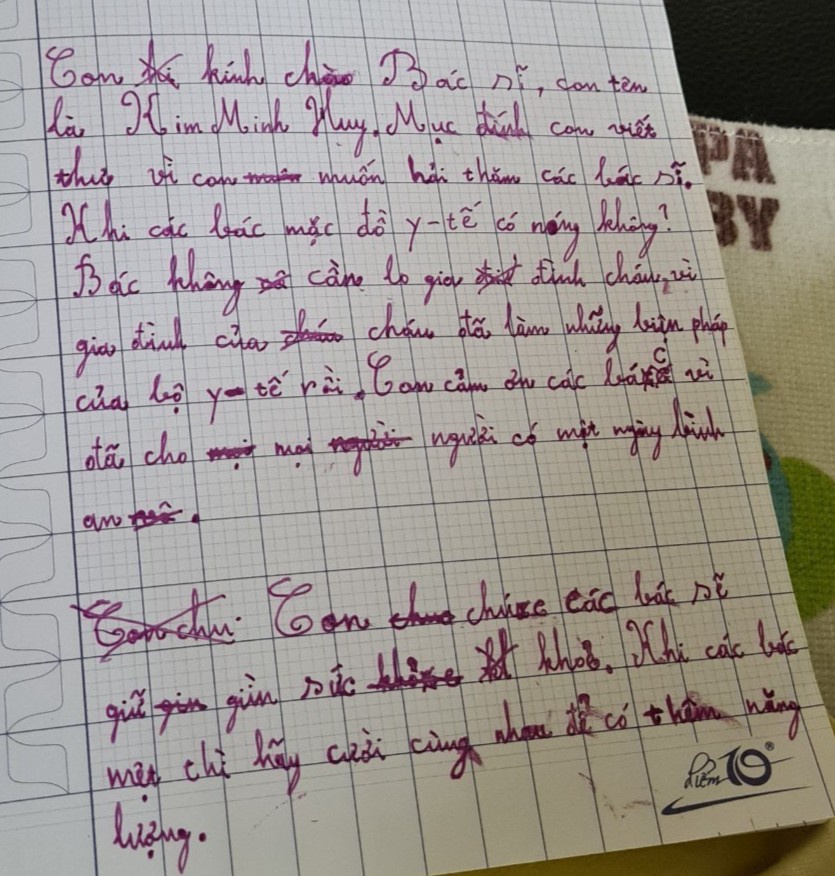 Con kính chào Bác sĩ, con tên
là Kim Minh Huy. Mục đính con viết
thư vì con muốn hỏi thăm các bác sĩ.
Khi các bác mặc đồ y-tế có nóng không?
Bác không cần lo gia đình cháu, vì
gia đình của cháu đã làm những biện pháp
của bộ y-tế rồi. Con cảm ơn các bác vì
đã cho mọi người có một ngày bình
an.
Con chúc các bác sẽ
giữ gìn sức khỏe. Khi các bác
mệt thì hãy cười cùng nhau để có thêm năng
lượng.
Điểm 10
PA
BY